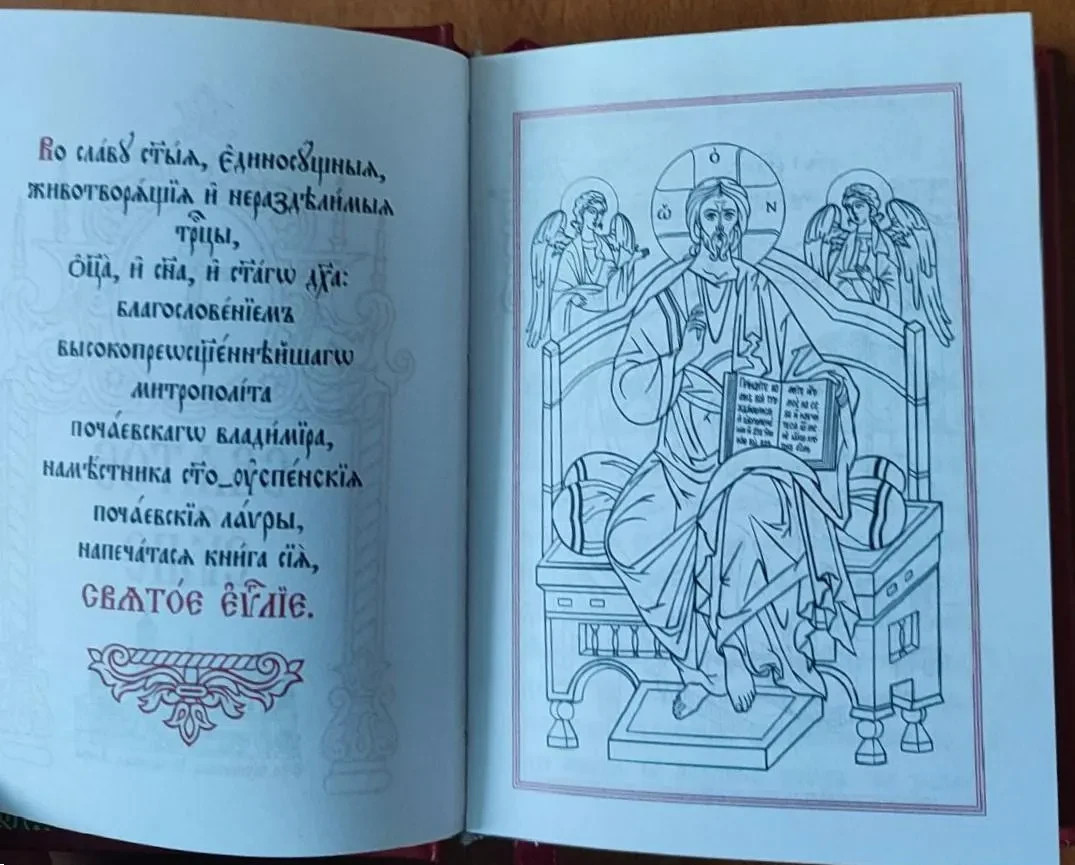 Во сла́вꙋ ст҃ы́ѧ, є҆диносꙋ́щныѧ,
животворѧ́щїѧ и҆ нераздѣли́мыѧ
трⷪ҇цы,
ѻ҆ц҃а̀, и҆ сн҃а, и҆ ст҃а́гѡ дх҃а:
благослове́нїемъ
высокопреѡсщ҃е́ннѣйшагѡ
митрополі́та
поча́евскагѡ влади́мїра,
намѣ́стника ст҃о_ᲂу҆спе́нскїѧ
поча́евскїѧ ла́ѵры,
напеча́тасѧ кни́га сїѧ̀,
свѧто́е є҆ѵⷢ҇лїе.
О
Ѡ Н